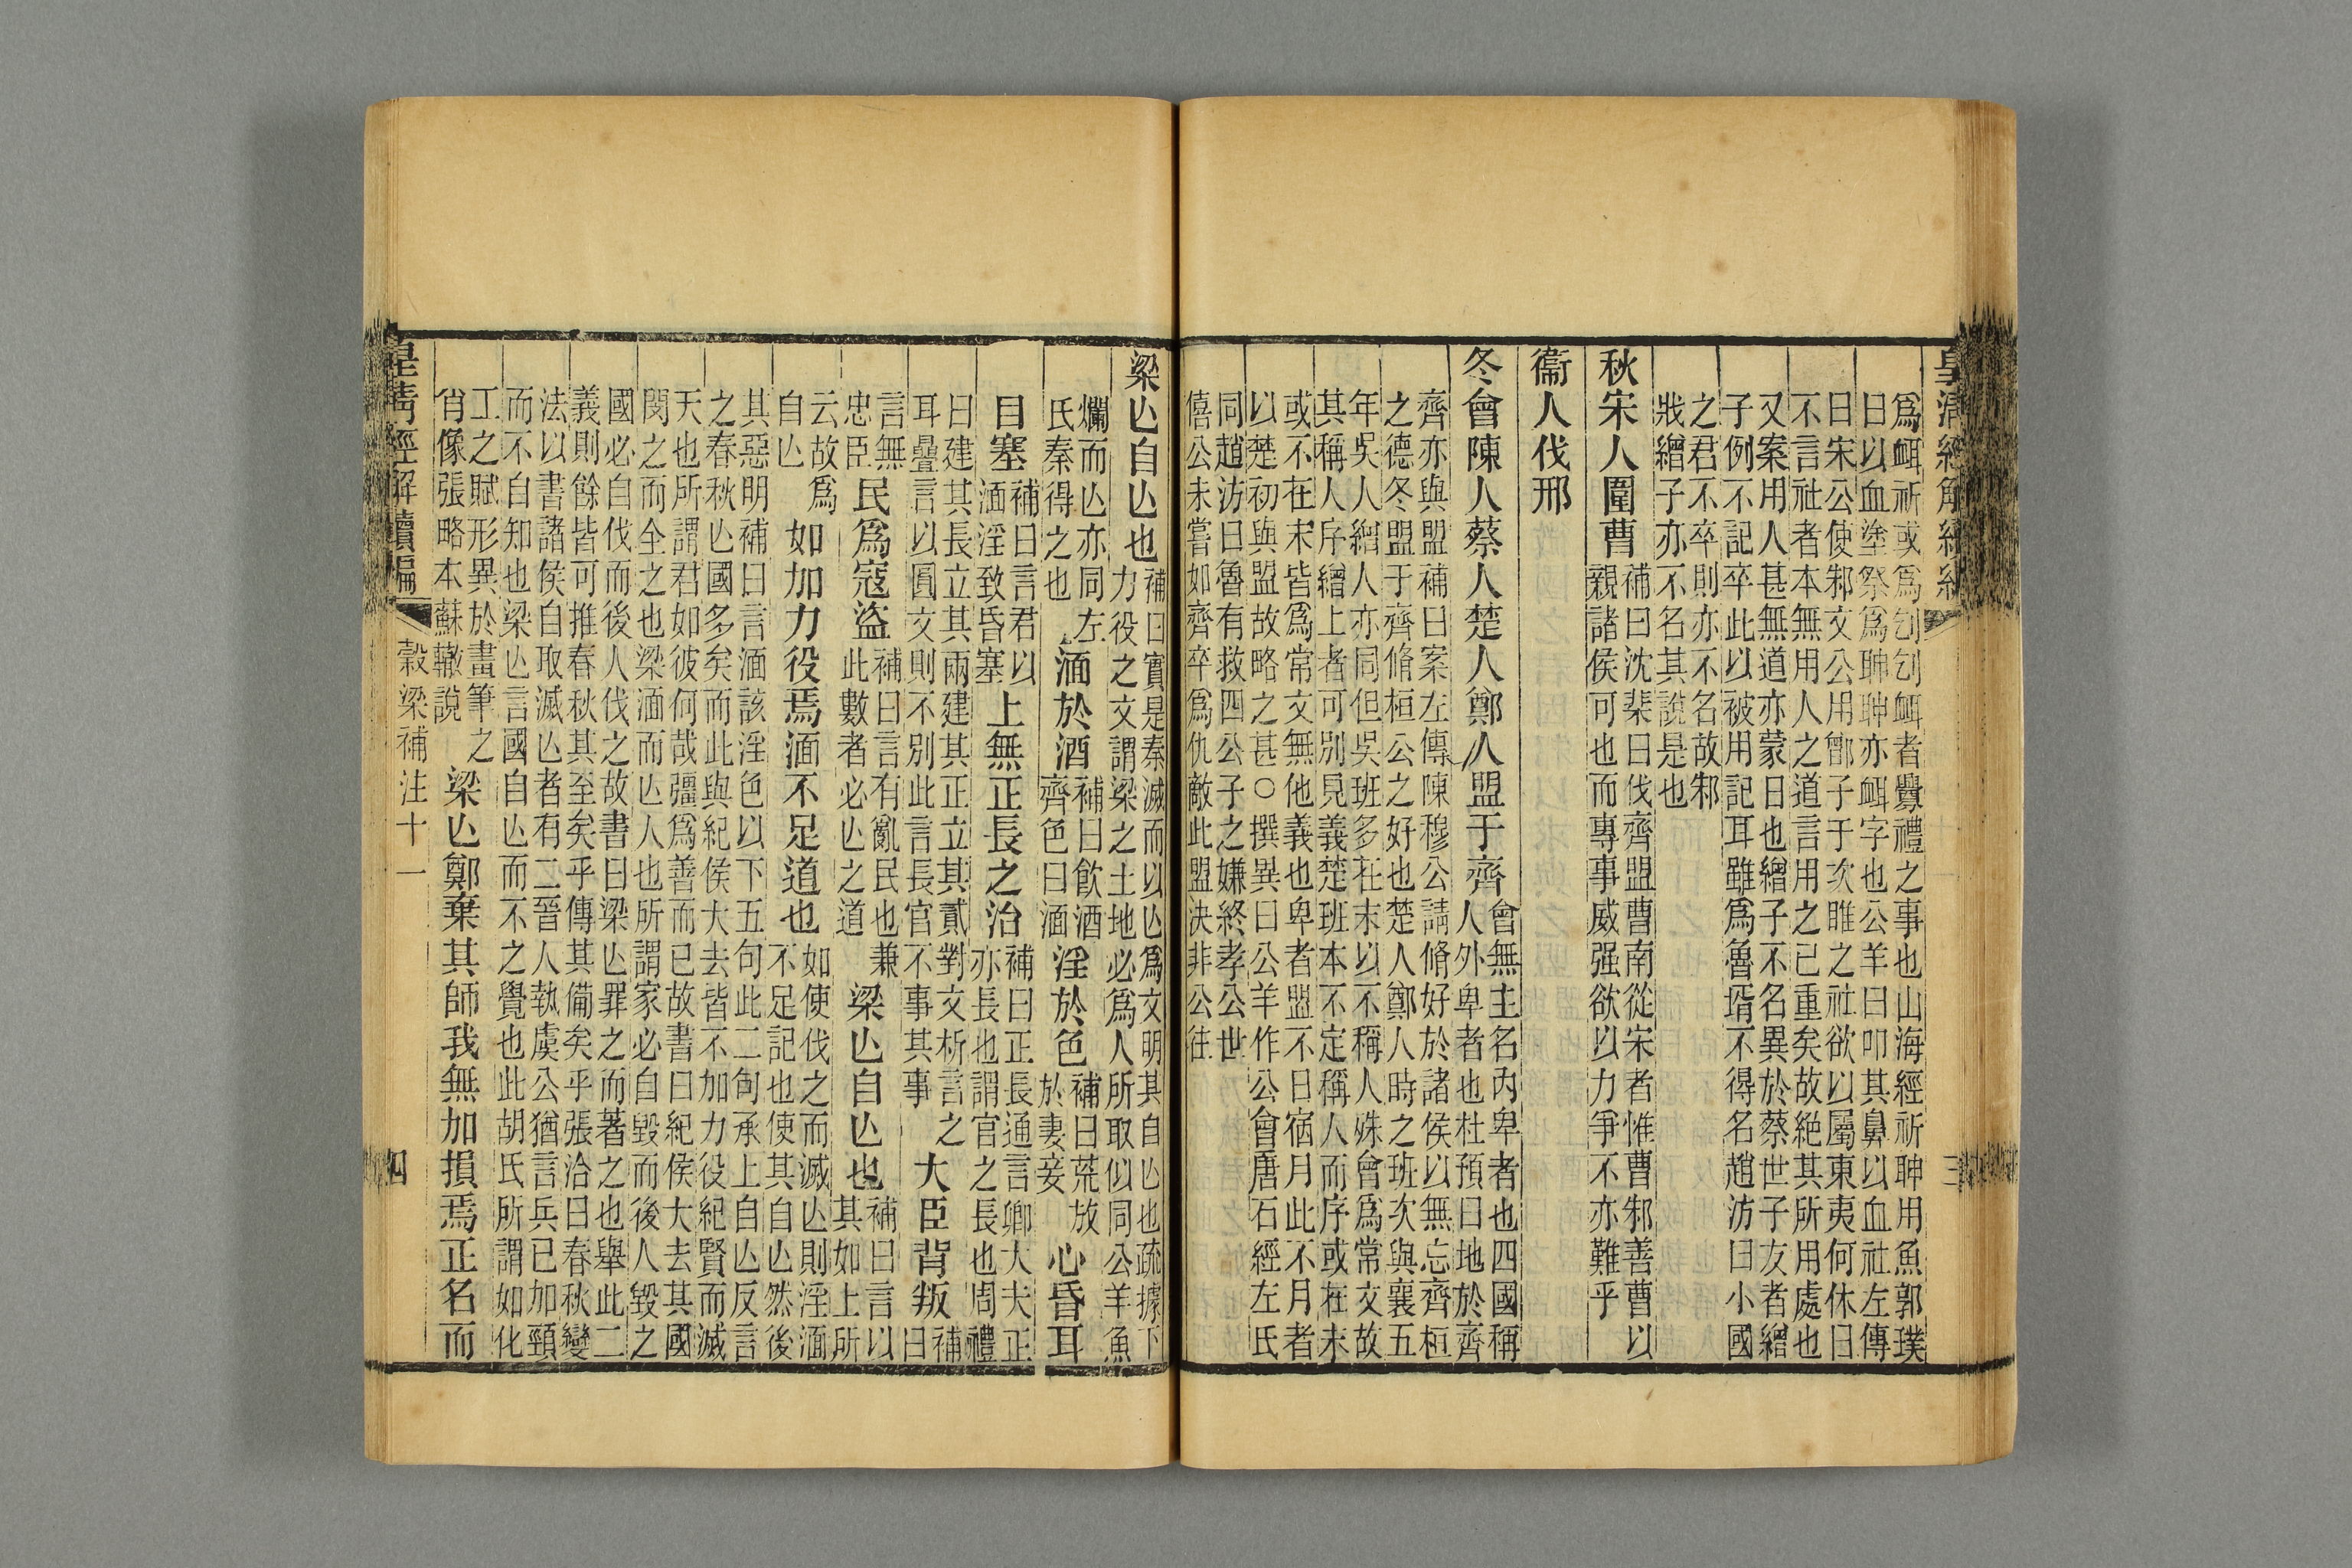 皇清經解續編
爲衈祈或爲刉刉衈者釁禮之事也山海經祈聃用魚郭璞
曰以血塗祭爲聃聃亦衈字也公羊曰叩其鼻以血社左傳
曰宋公使邾文公用鄫子于次睢之社欲以屬東夷何休曰
不言社者本無用人之道言用之已重矣故絶其所用處也
又案用人甚無道亦蒙日也繒子不名異於蔡世子友者繒
子例不記卒此以被用記耳雖爲魯壻不得名趙汸曰小國
之君不卒則亦不名故邾
戕繒子亦不名其說是也
秋宋人圍曹
補曰沈棐曰伐齊盟曹南從宋者惟曹邾善曹以
親諸侯可也而專事威强欲以力爭不亦難乎
衞人伐邢
冬會陳人蔡人楚人鄭人盟于齊
會無主名內卑者也四國稱
人外卑者也杜預曰地於齊
齊亦與盟補曰案左傳陳穆公請脩好於諸侯以無忘齊桓
之德冬盟于齊脩桓公之好也楚人鄭人時之班次與襄五
年吳人繒人亦同但吳班多在末以不稱人殊會爲常文故
其稱人序繒上者可別見義楚班本不定稱人而序或在末
或不在末皆爲常文無他義也卑者盟不日宿月此不月者
以楚初與盟故略之甚○撰異曰公羊作公會唐石經左氏
同趙汸曰魯有救四公子之嫌終孝公世
僖公未嘗如齊卒爲仇敵此盟決非公往
三
梁亾自亾也
補曰實是秦滅而以亾爲文明其自亾也疏據下
力役之文謂梁之土地必爲人所取似同公羊魚
爛而亾亦同左
氏秦得之也
湎於酒
補曰飲酒
齊色曰湎
淫於色
補曰荒放
於妻妾
心昏耳
目塞
補曰言君以
湎淫致昏塞
上無正長之治
補曰正長通言卿大夫正
亦長也謂官之長也周禮
曰建其長立其兩建其正立其貳對文析言之
耳疊言以圓文則不別此言長官不事其事
大臣背叛
補
曰
言無
忠臣
民爲寇盜
補曰言有亂民也兼
此數者必亾之道
梁亾自亾也
補曰言以
其如上所
云故爲
自亾
如加力役焉湎不足道也
如使伐之而滅亾則淫湎
不足記也使其自亾然後
其惡明補曰言湎該淫色以下五句此二句承上自亾反言
之春秋亾國多矣而此與紀侯大去皆不加力役紀賢而滅
天也所謂君如彼何哉彊爲善而已故書曰紀侯大去其國
閔之而全之也梁湎而亾人也所謂家必自毀而後人毀之
國必自伐而後人伐之故書曰梁亾罪之而著之也舉此二
義則餘皆可推春秋其至矣乎傳其備矣乎張洽曰春秋變
法以書諸侯自取滅亾者有二晉人執虞公猶言兵已加頸
而不自知也梁亾言國自亾而不之覺也此胡氏所謂如化
工之賦形異於畫筆之
肖像張略本蘇轍說
梁亾鄭棄其師我無加損焉正名而
皇清經解續編
穀梁補注十一
四